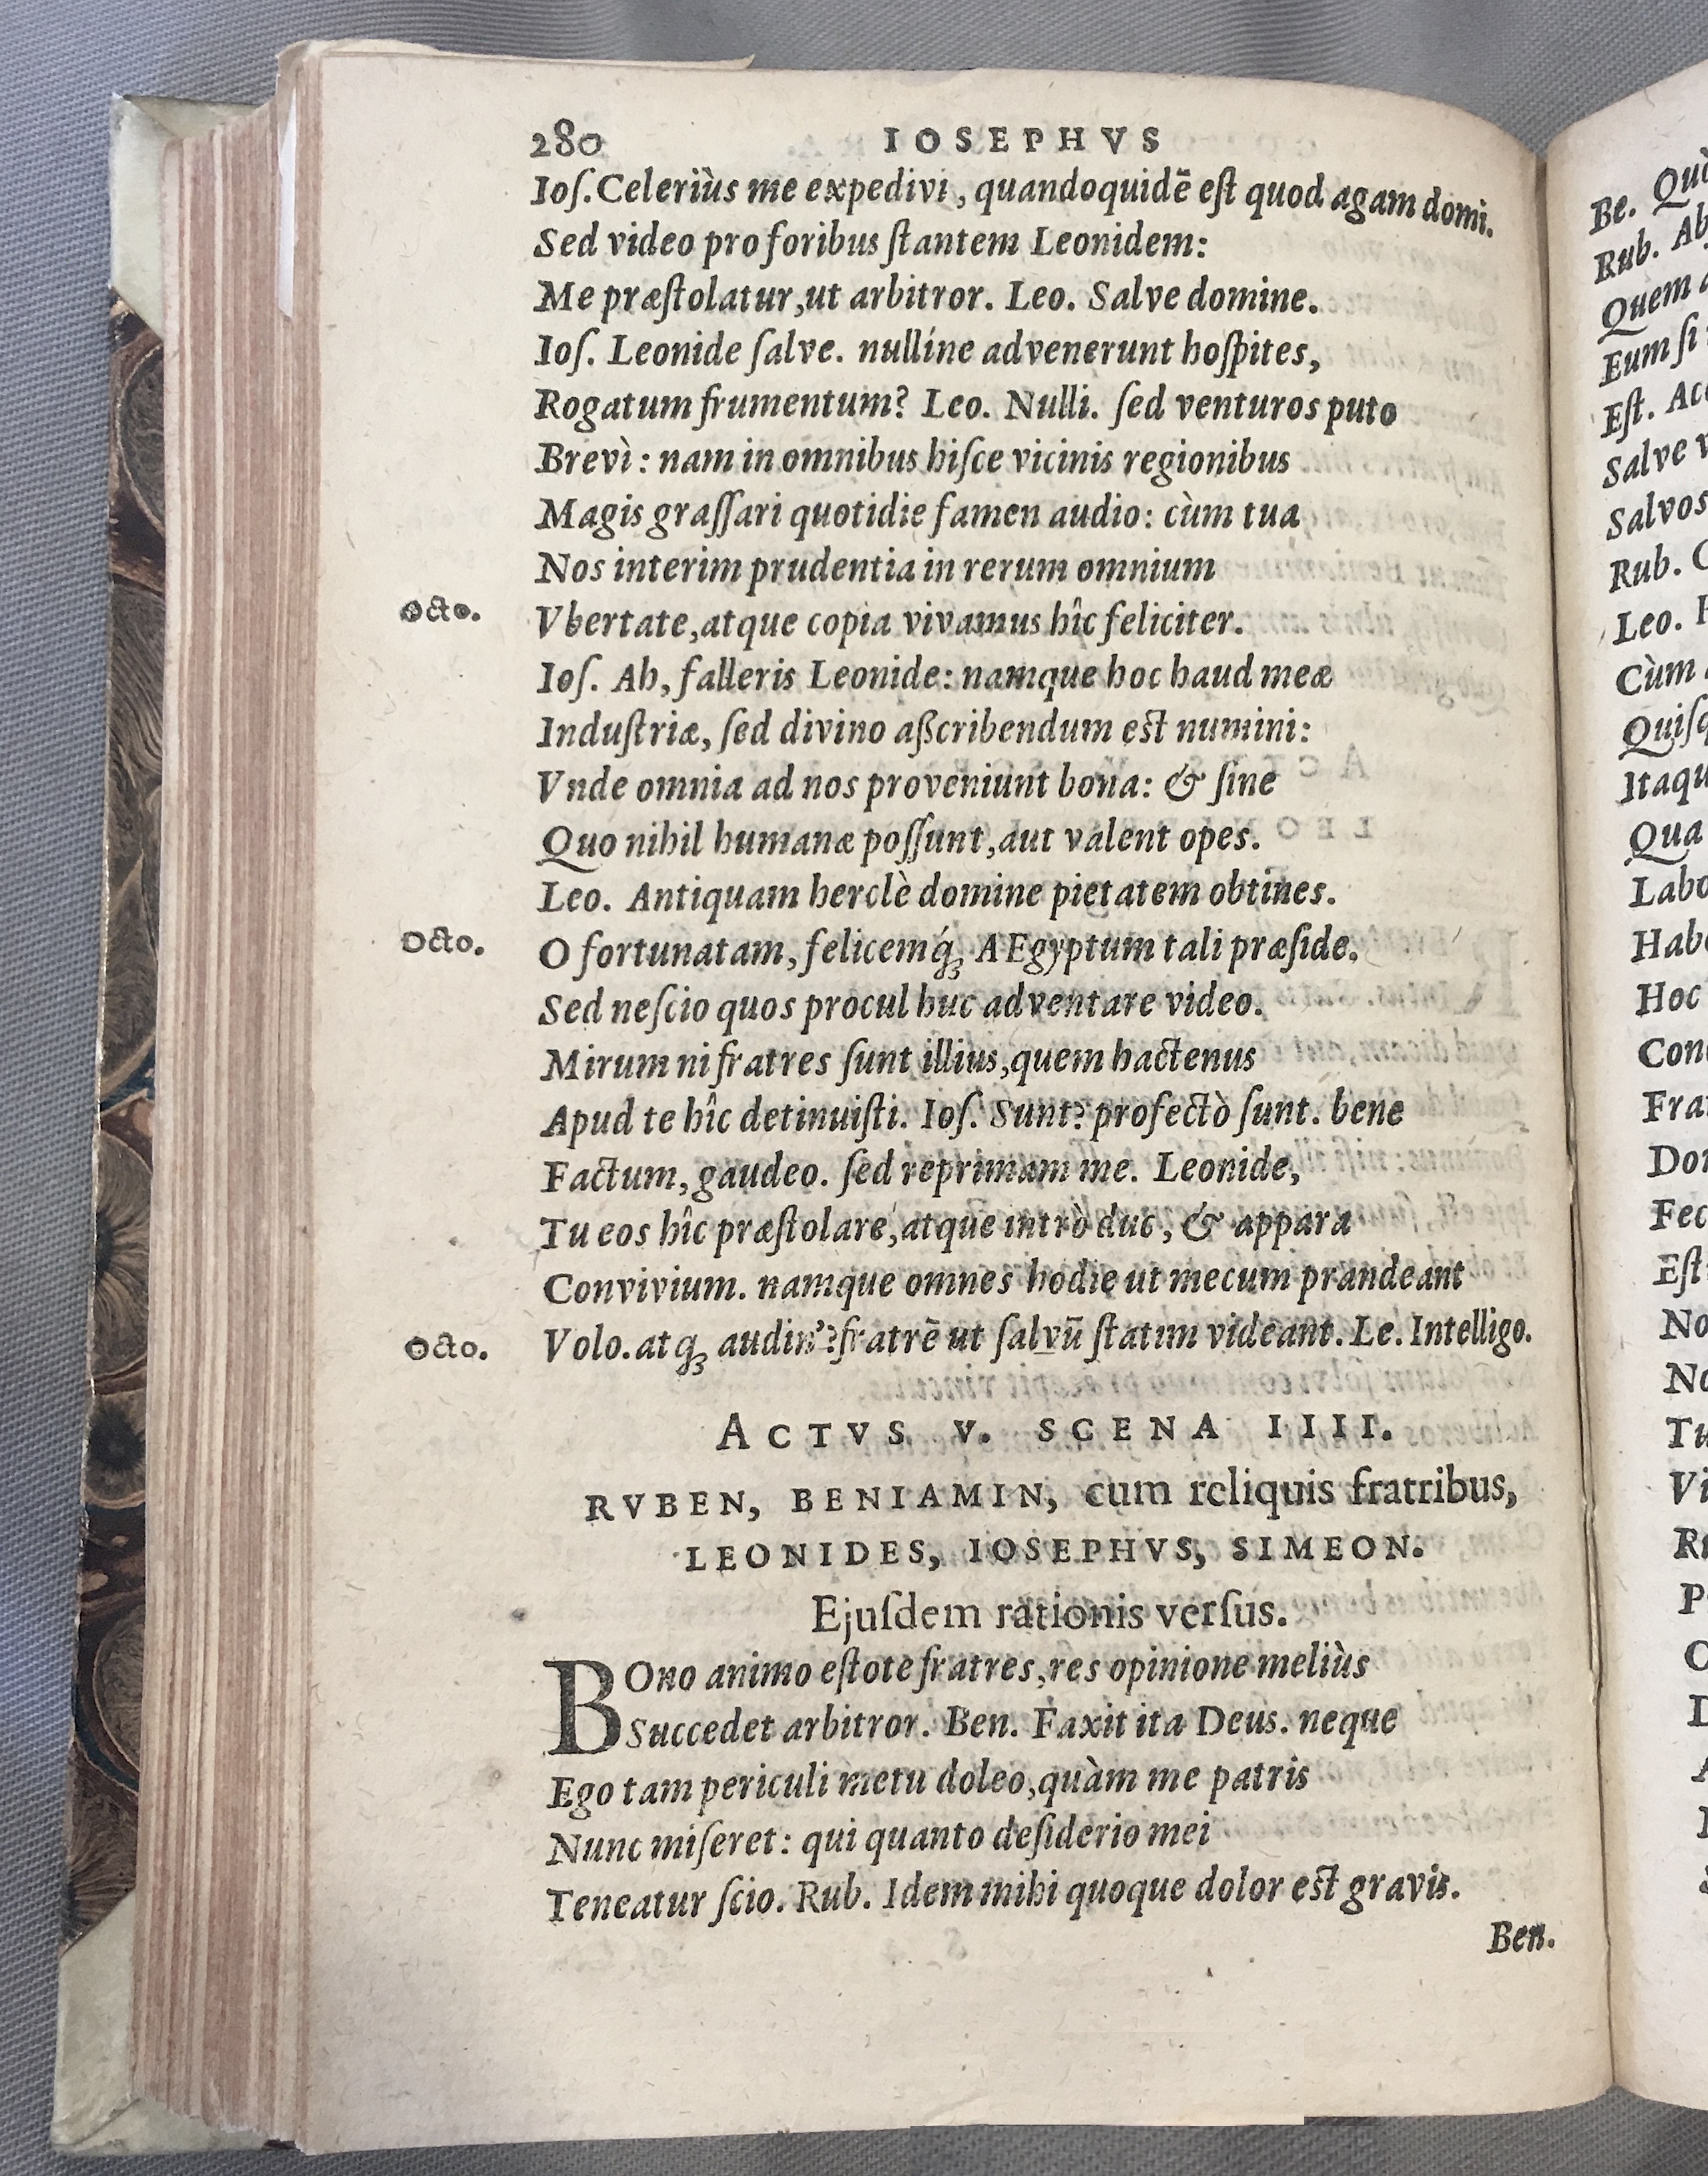 280 IOSEPHVS
Ioſ. Celeriùs me expedivi, quandoquidē eſt quod agam domi.
Sed video pro foribus ſtantem Leonidem:
Me præſtolatur, ut arbitror. Leo. Salve domine.
Ioſ. Leonide ſalve. nullíne advenerunt hoſpites,
Rogatum frumentum? Leo. Nulli. ſed venturos puto
Brevì: nam in omnibus hiſce vicinis regionibus
Magis graſſari quotidie famen audio: cùm tua
Nos interim prudentia in rerum omnium
Octo. Vbertate, atque copia vivamus hîc feliciter.
Ioſ. Ah, falleris Leonide: namque hoc haud meæ
Induſtriæ, ſed divino aßcribendum eſt numini:
Vnde omnia ad nos proveniunt bona: & ſine
Quo nihil humanæ poſſunt, aut valent opes.
Leo. Antiquam herclè domine pietatem obtines.
Octo. O fortunatam, felicemq́ꝫ AEgyptum tali præſide.
Sed neſcio quos procul huc adventare video.
Mirum ni fratres ſunt illius, quem hactenus
Apud te hîc detinuiſti. Ioſ. Sunt? profectò ſunt. bene
Factum, gaudeo. ſed reprimam me. Leonide,
Tu eos hîc præſtolare, atque intrò duc, & appara
Convivium. namque omnes hodie ut mecum prandeant
Octo. Volo. atqꝫ audin'? fratrē ut ſalvū ſtatim videant. Le. Intelligo.
ACTVS V. SCENA IIII.
RVBEN, BENIAMIN, cum reliquis fratribus,
LEONIDES, IOSEPHVS, SIMEON.
Ejuſdem rationis verſus.
BOno animo eſtote fratres, res opinione meliùs
Succedet arbitror. Ben. Faxit ita Deus. neque
Ego tam periculi metu doleo, quàm me patris
Nunc miſeret: qui quanto deſiderio mei
Teneatur ſcio. Rub. Idem mihi quoque dolor eſt gravis.
Ben.
Be.
Rub.
Quem
Eum ſi
Eſt.
Salve
Salvos
Rub.
Leo.
Cùm
Qua
Hoc